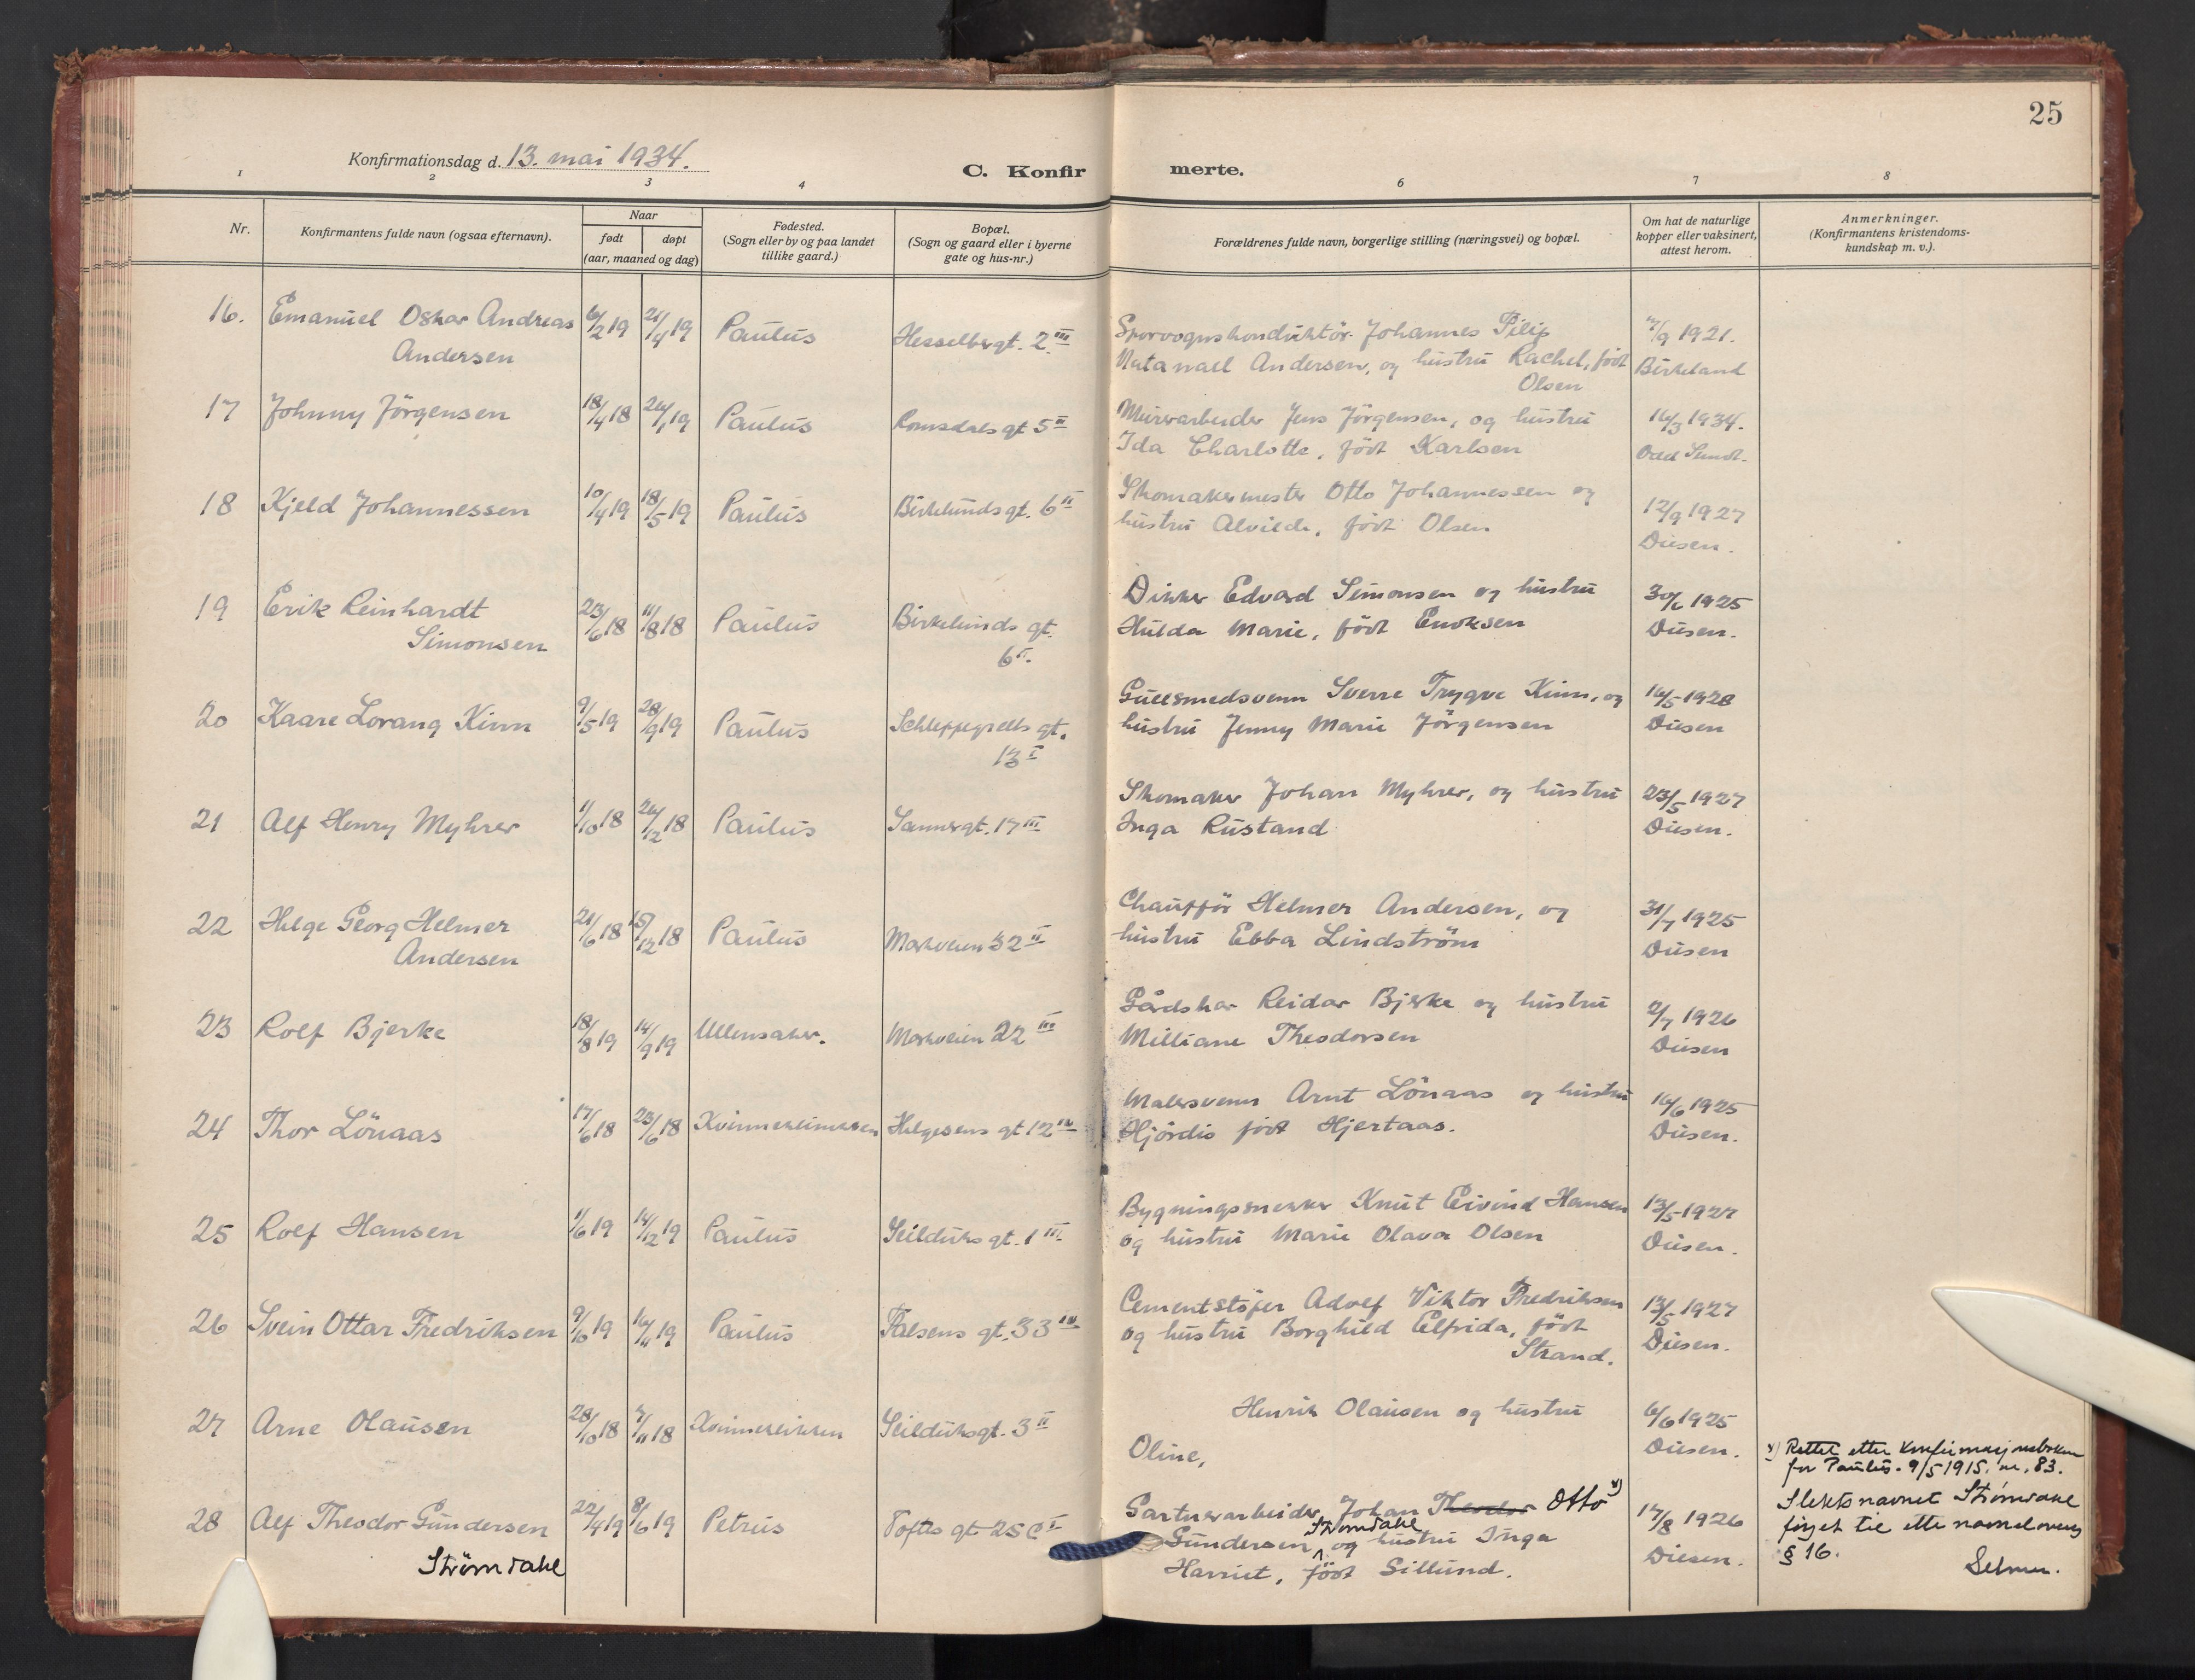 25
Konfirmationsdag d. 13. mai 1934.
C. Konfirmerte.
1 2 3 4 6 7 8
Nr.
Konfirmantens fulde navn (ogsaa efternavn).
Naar
født døpt
(aar, maaned og dag)
Fødested.
(Sogn eller by og paa landet
tillike gaard.)
Bopæl.
(Sogn og gaard eller i byerne
gate og hus-nr.)
Forældrenes fulde navn, borgerlige stilling (næringsvei) og bopæl.
Om hat de naturlige
kopper eller vaksinert,
attest herom.
Anmerkninger.
(Konfirmantens kristendoms-
kundskap m. v.).
16. Emanuel Oskar Andreas 6/2 19 21/4 19 Paulus Hesselbergt. 2 III Sporvognskonduktör Johannes Filip 7/9 1921.
Andersen Natanael Andersen, og hustru Rachel, födt Birkeland
Olsen
17 Johnny Jörgensen 18/4 18 26/1 19 Paulus Romsdalsgt 5 II Murerarbeider Jens Jörgensen, og hustru 16/3 1934.
Ida Charlotte, födt Karlsen Odd
18 Kjeld Johannessen 10/4 19 18/5 19 Paulus Birkelundsgt. 6 II Skomakermester Otto Johannessen og 12/9 1927
hustru Alvilde, födt Olsen Diesen.
19 Erik Reinhardt 23/6 18 11/8 18 Paulus Birkelunds gt. Dikker Edvard Simonsen og hustru 30/6 1925
Simonsen 6 II. Hulda Marie, födt Enoksen Diesen.
20 Kaare Lorang Kinn 9/5 19 28/9 19 Paulus Schleppegrells gt. Gullsmedsvenn Sverre Trygve Kinn, og 16/5 1928
13 I hustru Jenny Marie Jörgensen Diesen
21 Alf Henry Myhrer 1/10 18 26/12 18 Paulus Sannergt. 17 III Skomaker Johan Myhrer, og hustru 23/5 1927
Inga Rustand Diesen.
22 Helge Georg Helmer 21/6 18 15/12 18 Paulus Markveien 32 II Chaufför Helmer Andersen, og 31/7 1925
Andersen hustru Ebba Lindström Diesen
23 Rolf Bjerke 18/8 19 14/9 19 Ullensaker. Markveien 22 III Gårdskar Reidar Bjerke og hustru 2/7 1926
Milliane Theodorsen Diesen
24 Thor Lönaas 17/6 18 23/6 18 Kvinneklinikken Helgesens gt 12 IV Malersvenn Arnt Lönaas og hustru 16/6 1925
Hjördis födt Hjertaas. Diesen.
25 Rolf Hansen 1/6 19 14/12 19 Paulus Seilduksgt. 1 III Bygningssnekker Knut Eivind Hansen 13/5 1927
og hustru Marie Olava Olsen Diesen.
26 Svein Ottar Fredriksen 9/6 19 16/11 19 Paulus Falsens gt. 33 IV Cementstöper Adolf Viktor Fredriksen 13/5 1927
og hustru Borghild Elfrida, födt Diesen.
Strand.
27 Arne Olausen 28/10 18 7/11 18 Kvinneklikken Seilduksgt. 3 II Henrik Olausen og hustru 6/6 1925
Oline, Diesen.
28 Alf Theodor Gundersen 22/4 19 8/6 19 Petrus Toftes gt 25 C I Garturarbeider Johan Theodor Otto x) 17/8 1926
Strömdahl Gundersen Strömdahl og hustru Inga
Harriet, födt Sillund. Diesen.
x) Rettet etter konfirmasjonsboken
for Paulus. 9/5 1915. nr. 83.
Slektsnavnet Strömdahl
föyet til etter navnelovens
§ 16.
Selmer.